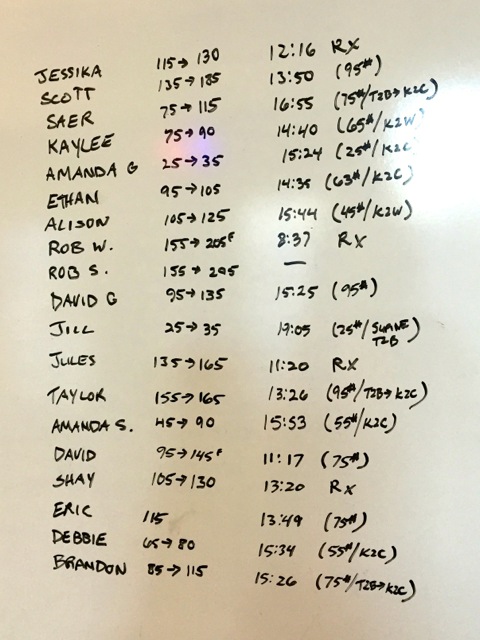 JESSIKA 115→130 12:16 RX
SCOTT 135→185 13:50 (95#)
SAER 75→115 16:55 (75#/T2B→K2C)
KAYLEE 75→90 14:40 (65#/K2W)
AMANDA G 25→35 15:24 (25#/K2C)
ETHAN 95→105 14:35 (63#/K2C)
ALISON 105→125 15:44 (45#/K2W)
ROB W. 155→205F 8:37 RX
ROB S. 155→205 —
DAVID G 95→135 15:25 (95#)
JILL 25→35 19:05 (25#/
T2B)
JULES 135→165 11:20 RX
TAYLOR 155→165 13:26 (95#/T2B→K2C)
AMANDA S. 45→90 15:53 (55#/K2C)
DAVID 95→145F 11:17 (75#)
SHAY 105→130 13:20 RX
ERIC 115 13:49 (75#)
DEBBIE 65→80 15:34 (55#/K2C)
BRANDON 85→115 15:26 (75#/T2B→K2C)